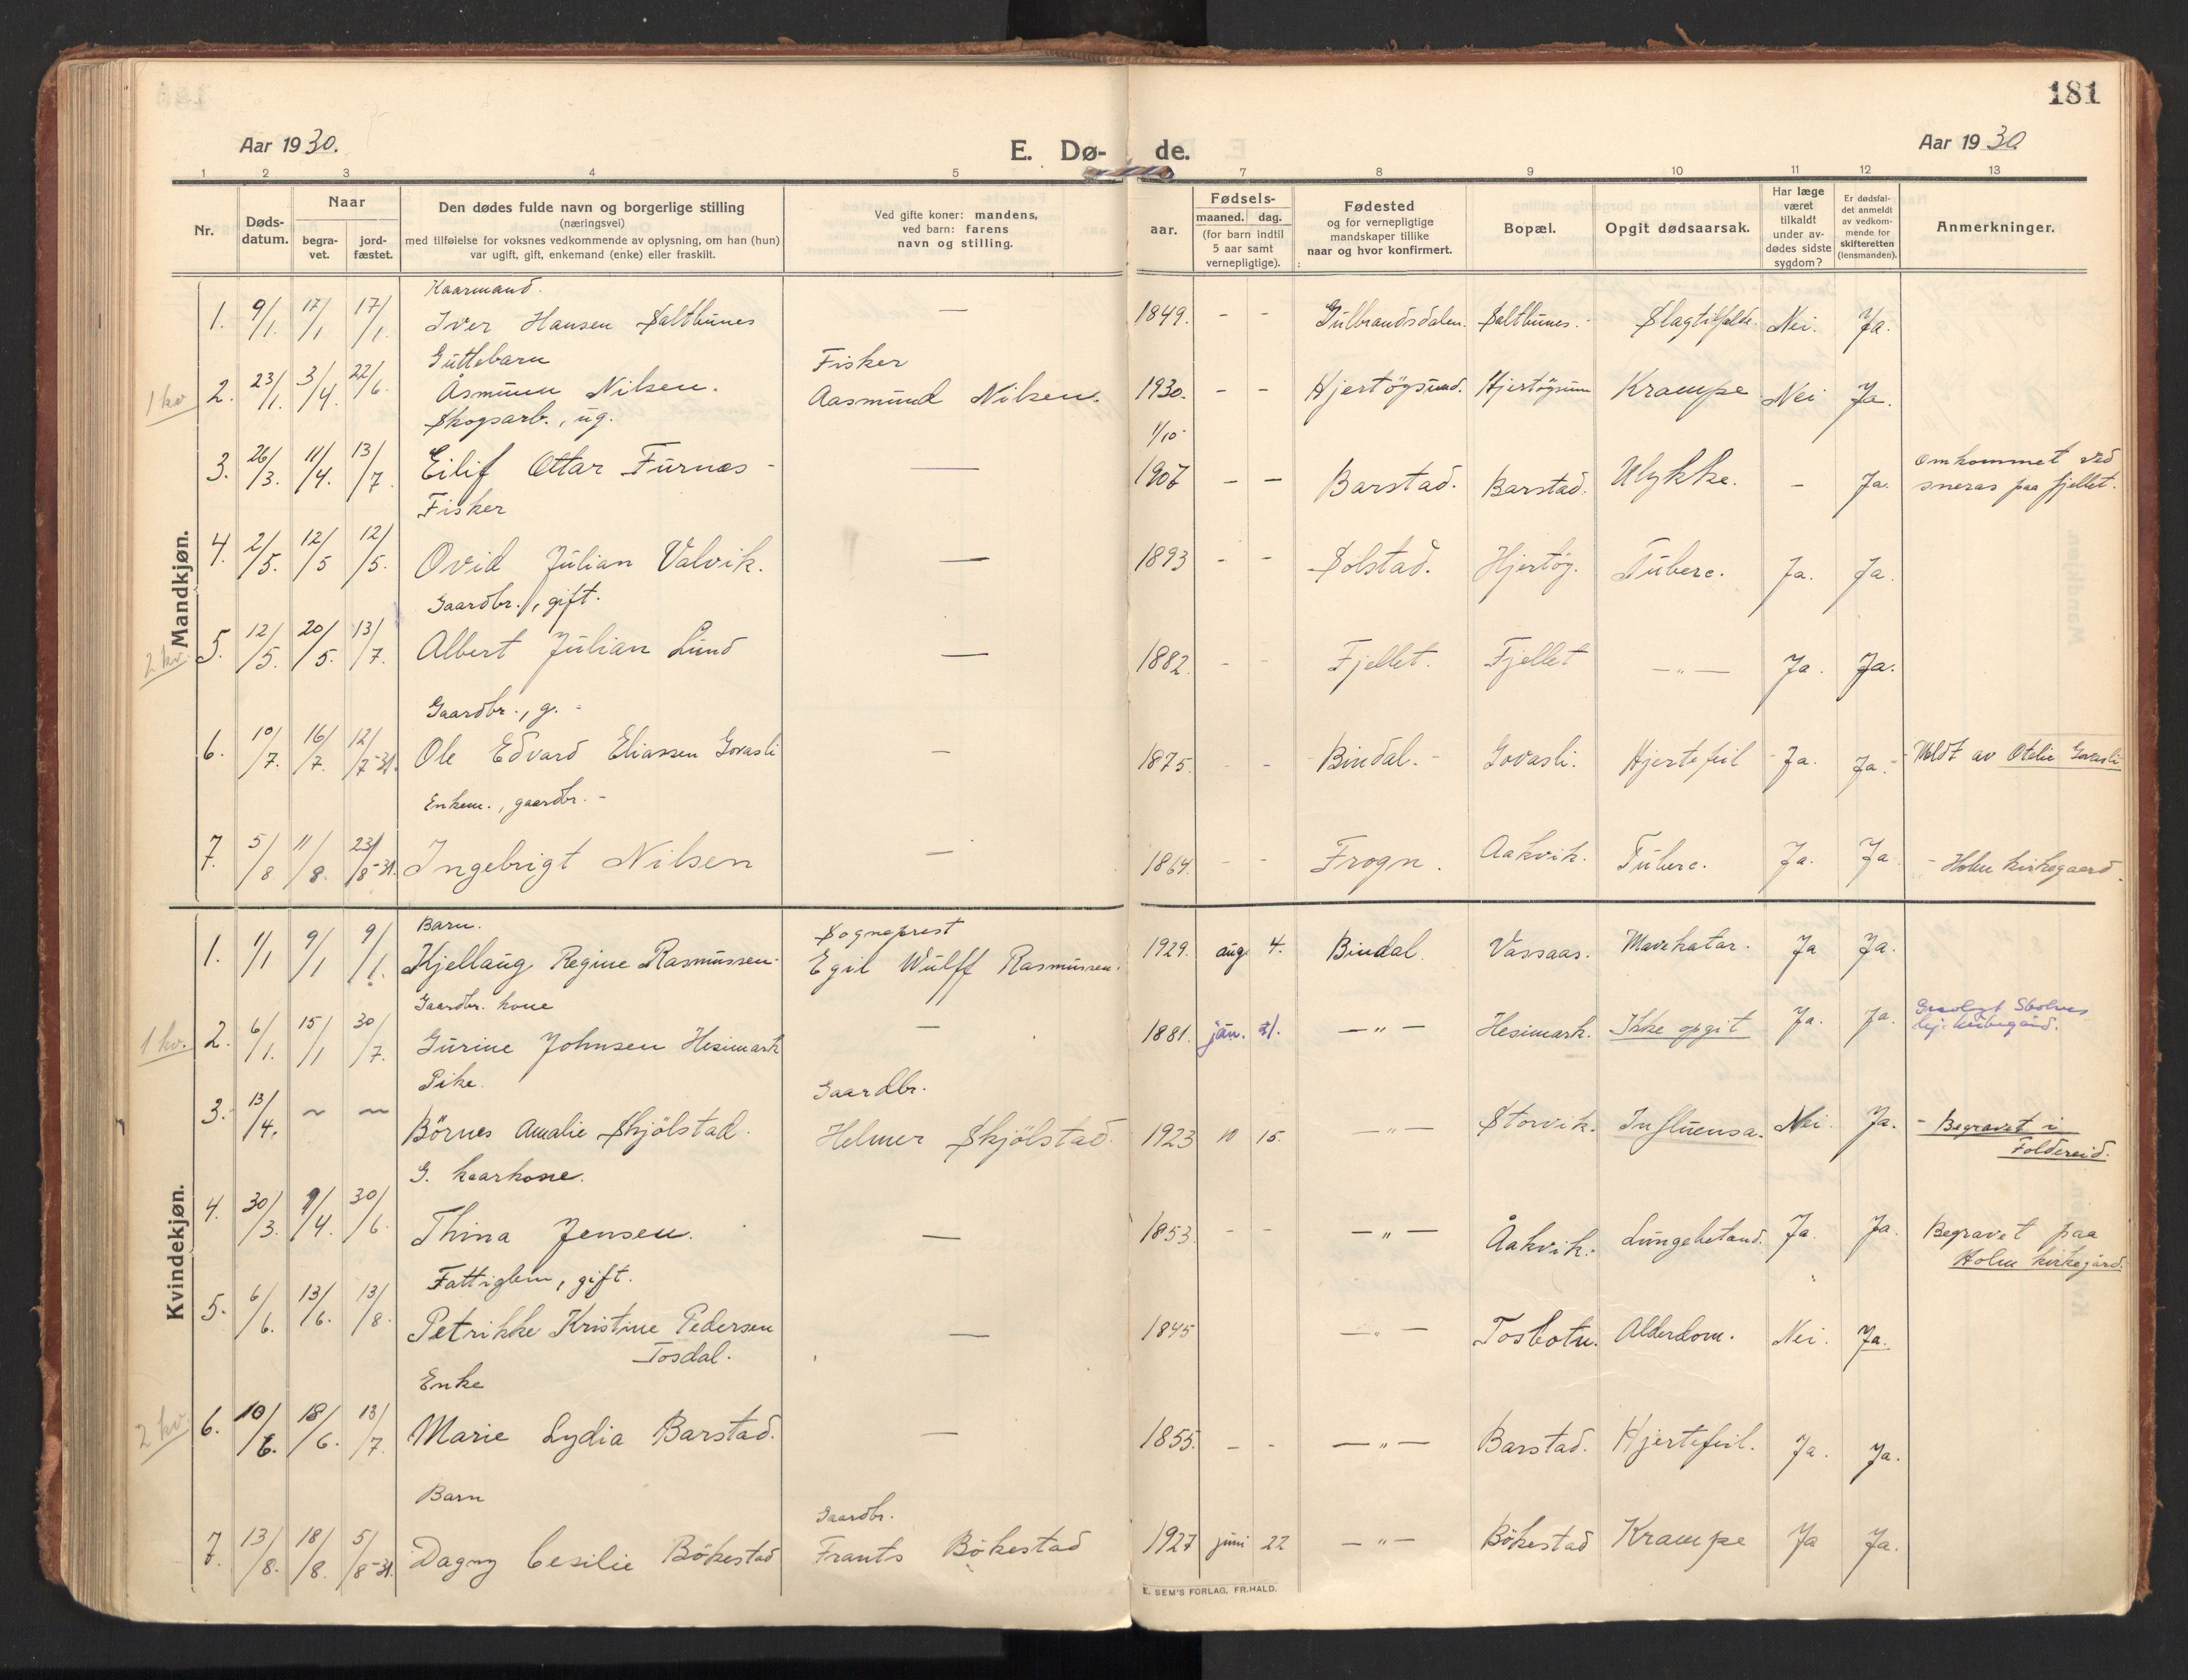 181
Aar 1930.
E. Dø- de.
Aar 1930
1 2 3 4 5 7 8 9 10 11 12 13
Nr.
Døds-datum.
Naar
begra-vet.
jord-fæstet.
Den dødes fulde navn og borgerlige stilling
(næringsvei)
med tilføielse for voksnes vedkommende av oplysning, om han (hun)
var ugift, gift, enkemand (enke) eller fraskilt.
Ved gifte koner: mandens,
ved barn: farens
navn og stilling.
aar.
Fødsels-
maaned. dag.
(for barn indtil
5 aar samt
vernepligtige).
Fødested
og for vernepligtige
mandskaper tillike
naar og hvor konfirmert.
Bopæl.
Opgit dødsaarsak.
Har læge
været
tilkaldt
under av-
dødes sidste
sygdom?
Er dødsfal-
det anmeldt
av vedkom-
mende for
skifteretten
(lensmanden).
Anmerkninger.
Mandkjøn.
Kaarmand.
1. 9/1. 17/1 17/1. Iver Hansen Saltbunes — 1849. - - Gulbrandsdalen. Saltbunes. Slagtilfælde. Nei. Ja.
Guttebarn Fisker
1 kv 2. 23/1. 3/4. 22/6. Åsmunn Nilsen. Aasmund Nilsen. 1930. - - Hjertögsund. Hjertögsunn Krampe Nei Ja.
Skogsarb., ug. 1/10
3. 26/3. 11/4. 13/7. Eilif Ottar Furnes - — 1907 - - Barstad. Barstad. Ulykke. - Ja. Omkommet ved
sneras paa fjellet.
Fisker
4. 2/5. 12/5 12/5. Ovid Julian Valvik. — 1893 - - Solstad. Hjertög. Tuberc. Ja. Ja.
Gaardbr., gift.
2 kv. 5. 12/5. 20/5. 13/7. Albert Julian Lund — 1882 - - Fjellet. Fjellet —"— Ja. Ja.
Gaardbr., g. -
6. 10/7. 16/7. 12/7-31. Ole Edvard Eliassen Govasli - 1875. - - Bindal. - Govasli. Hjertefeil - Ja. Ja. - Meldt av Otelie Govasli
Enkem., gaardbr. -
7. 5/8 11/8. 23/8-31. Ingebrigt Nilsen — 1864. - - Frogn. Aakvik. Tuberc. Ja. Ja - Holm kirkegaard.
Kvindekjøn.
Barn. Sogneprest
1. 1/1 9/1 9/1. Kjellaug Regine Rasmussen. Egil Wulff Rasmussen. 1929. aug. 4. Bindal. Vassaas. Mavekatar. Ja Ja.
Gaardbr. kone
1 kv. 2. 6/1. 15/1 30/7. Gurine Johnsen Hesimark — 1881. jan. 21. —"— Hesimark. Ikke opgit Ja. Ja.
Pike. Gaardbr.
3. 13/4. ~ ~ Börnes Amalie Skjölstad. Helmer Skjölstad. 1923 10 15. —"— Storvik. Influensa. Nei. Ja. - Begravet i
Foldereid.
G. kaarkone.
4. 30/3. 9/4. 30/6. Thina Jensen. — 1853. - - —"— Åakvik. Lungebetænd. Ja. Ja. Begravet paa
Holm kirkegård.
Fattiglem, gift.
5. 6/6. 13/6. 13/8. Petrikke Kristine Pedersen
Tosdal. — 1845 —"— Tosbotn. Alderdom. Nei. Ja.
Enke
2 kv. 6. 10/6. 18/6. 13/7. Marie Lydia Barstad. — 1855. - - —"— Barstad. Hjertefeil. Ja. Ja.
Barn Gaardbr.
7. 13/8. 18/8. 5/8-31. Dagny Cesilie Bökestad Frants Bökestad 1927 juni 22 —"— Bökestad Krampe Ja Ja.
E. SEM'S FORLAG, FR.HALD.